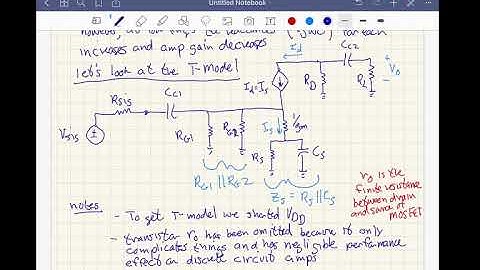 Untitled Notebook
however, at low freqs the reactance (1/jωc) for each
increases and amp gain decreases
let's look at the T-model
Id
Cc2
Rsis
Cc1
Id=Is
RD
RL
Vo
+
-
Vsis
RG1
RG2
Is
1/gm
RS
CS
RG1 || RG2
Zs = Rs || Cs
ro is the
finite resistance
between drain
and source of
MOSFET
notes
- To get T-model we shorted VDD
- transistor ro has been omitted because it only
complicates things and has negligible performance
effect on discrete circuit amps